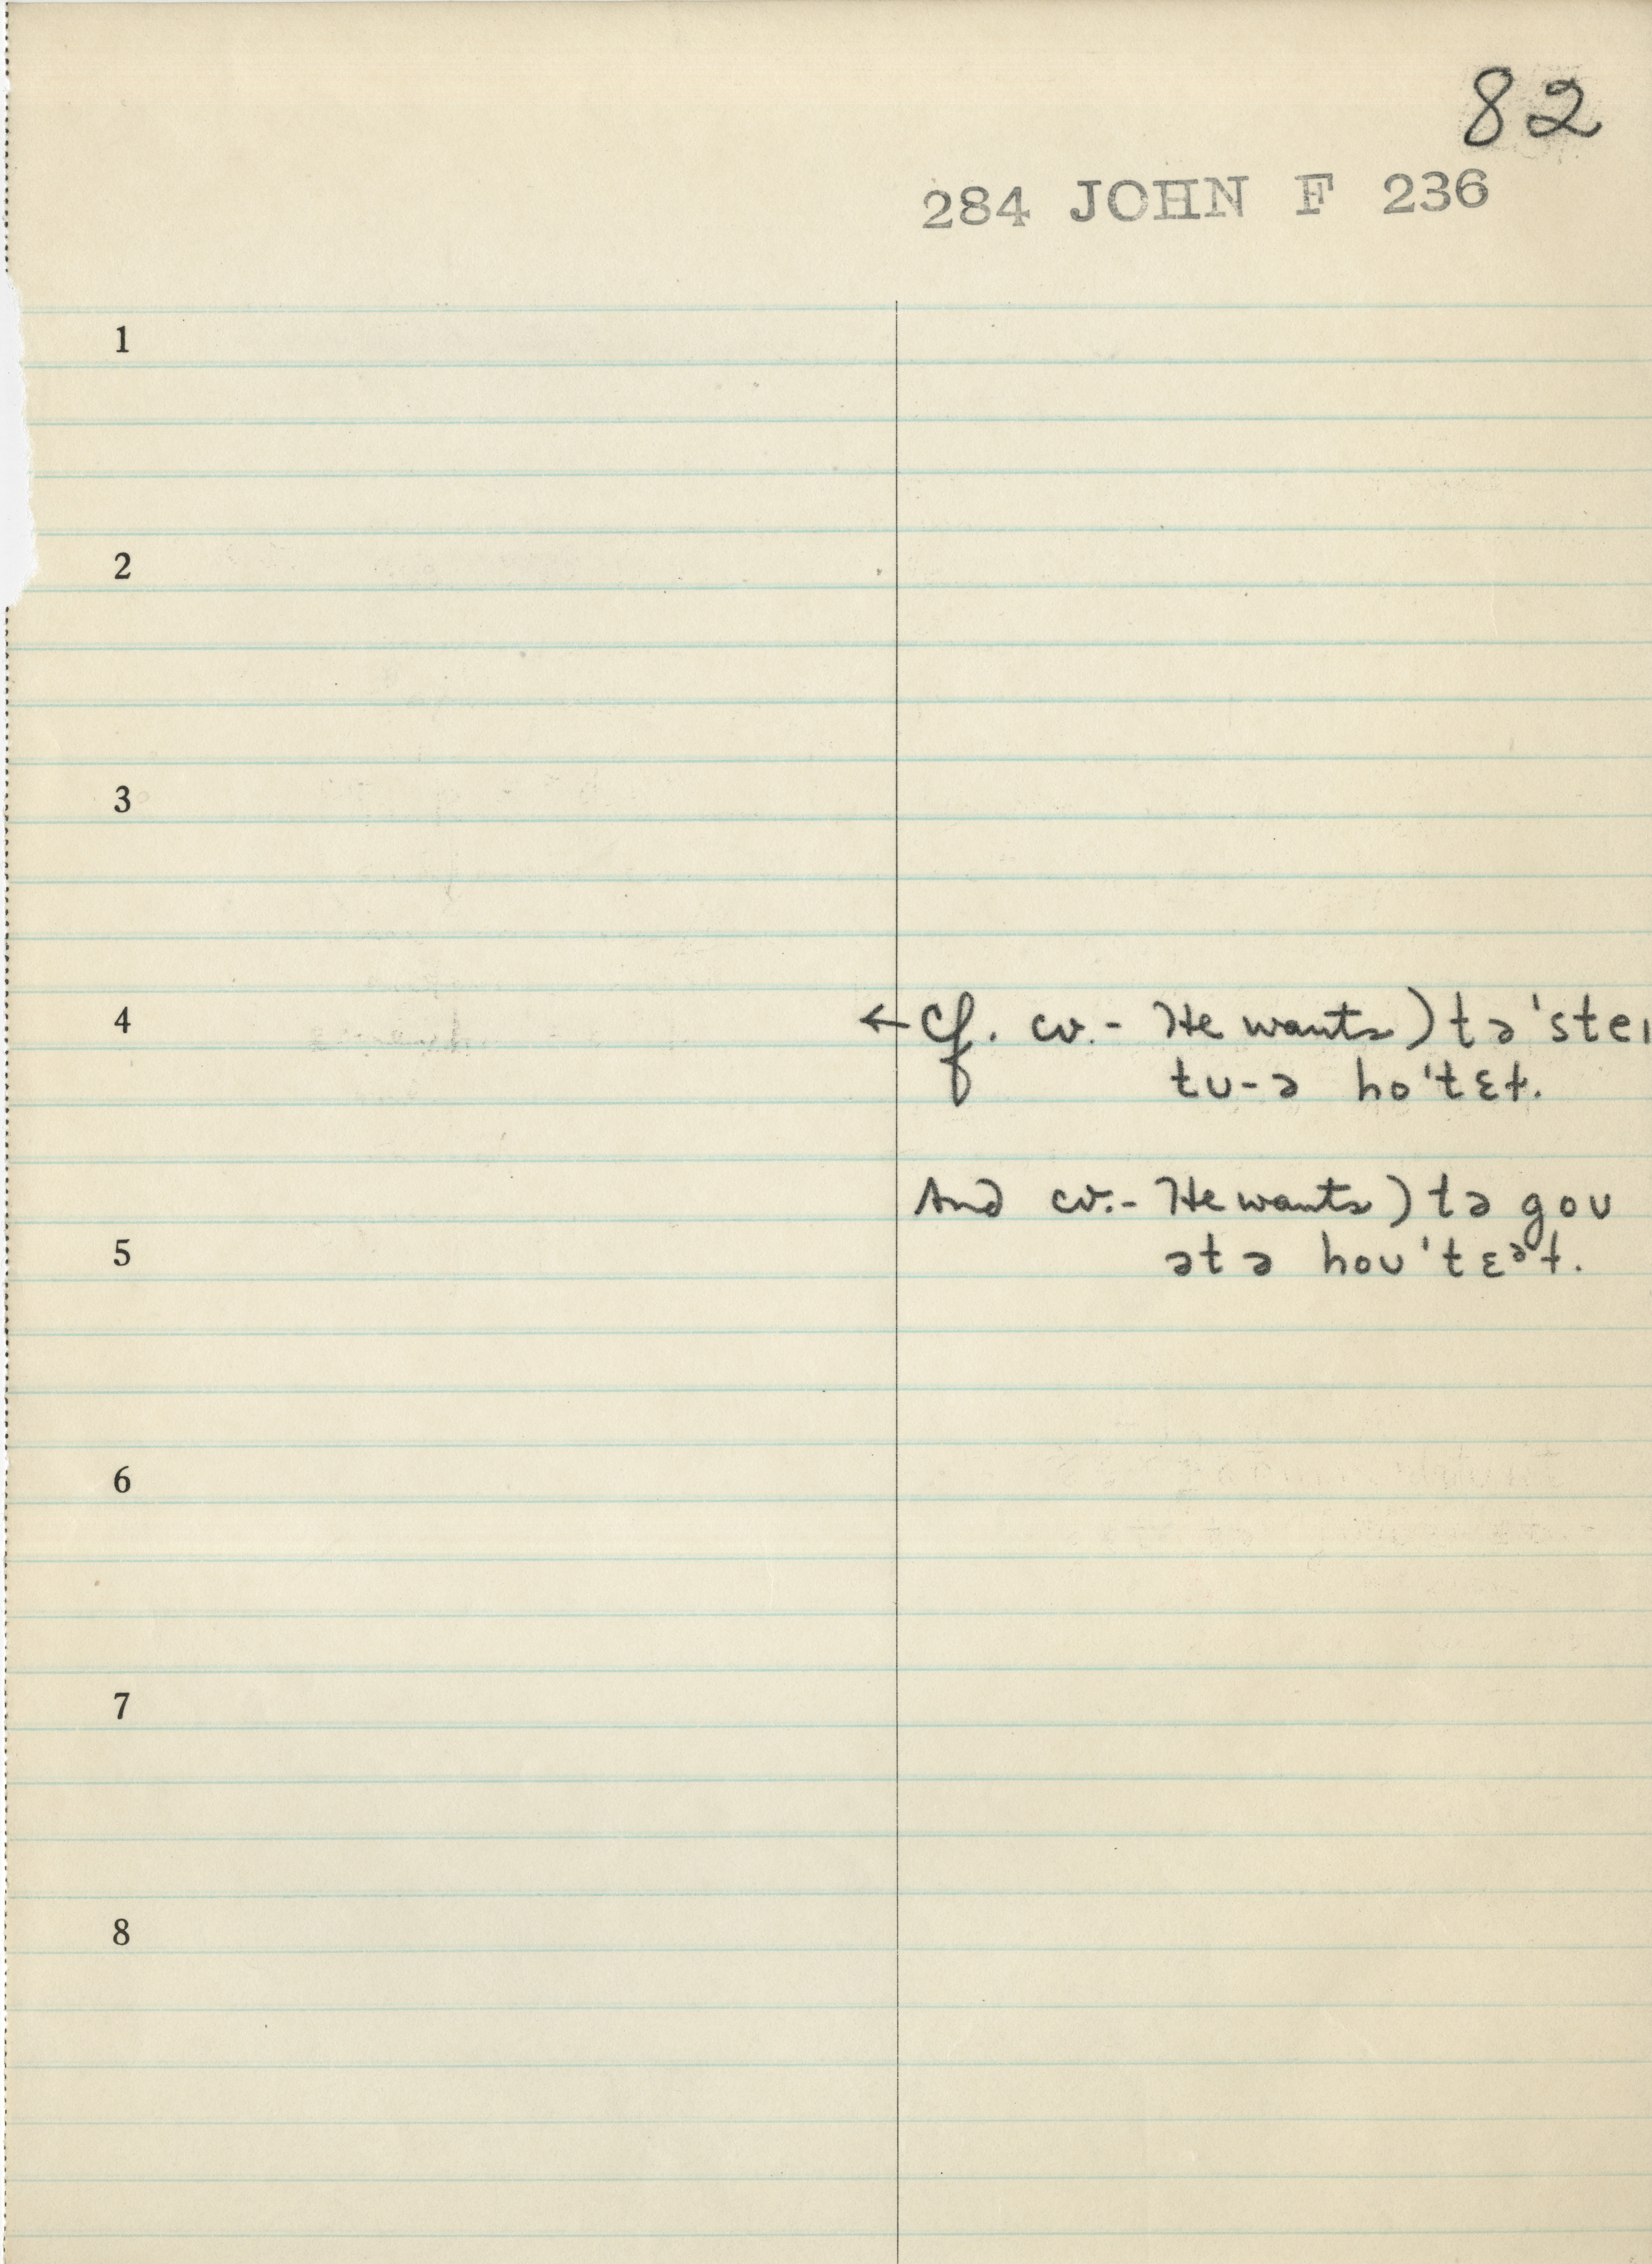 82
284 JOHN F 236
1
2
3
4
← cf. cv. - He wants) tə'steɪ
tʊ-ə ho'tɛɫ.
And cv. - He wants) tə goʊ
5
ətə hoʊ'tɛᵊɫ.
6
7
8